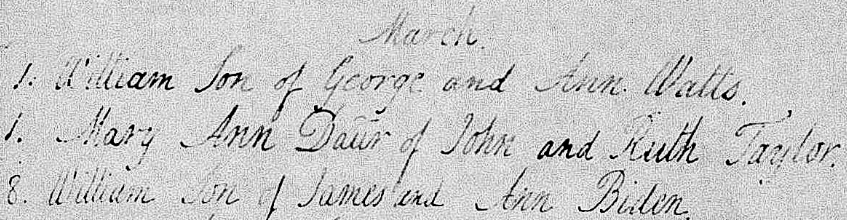 March.
1. William Son of George and Ann Watts.
1. Mary Ann Daur of John and Ruth Taylor.
8. William Son of James and Ann Biden.